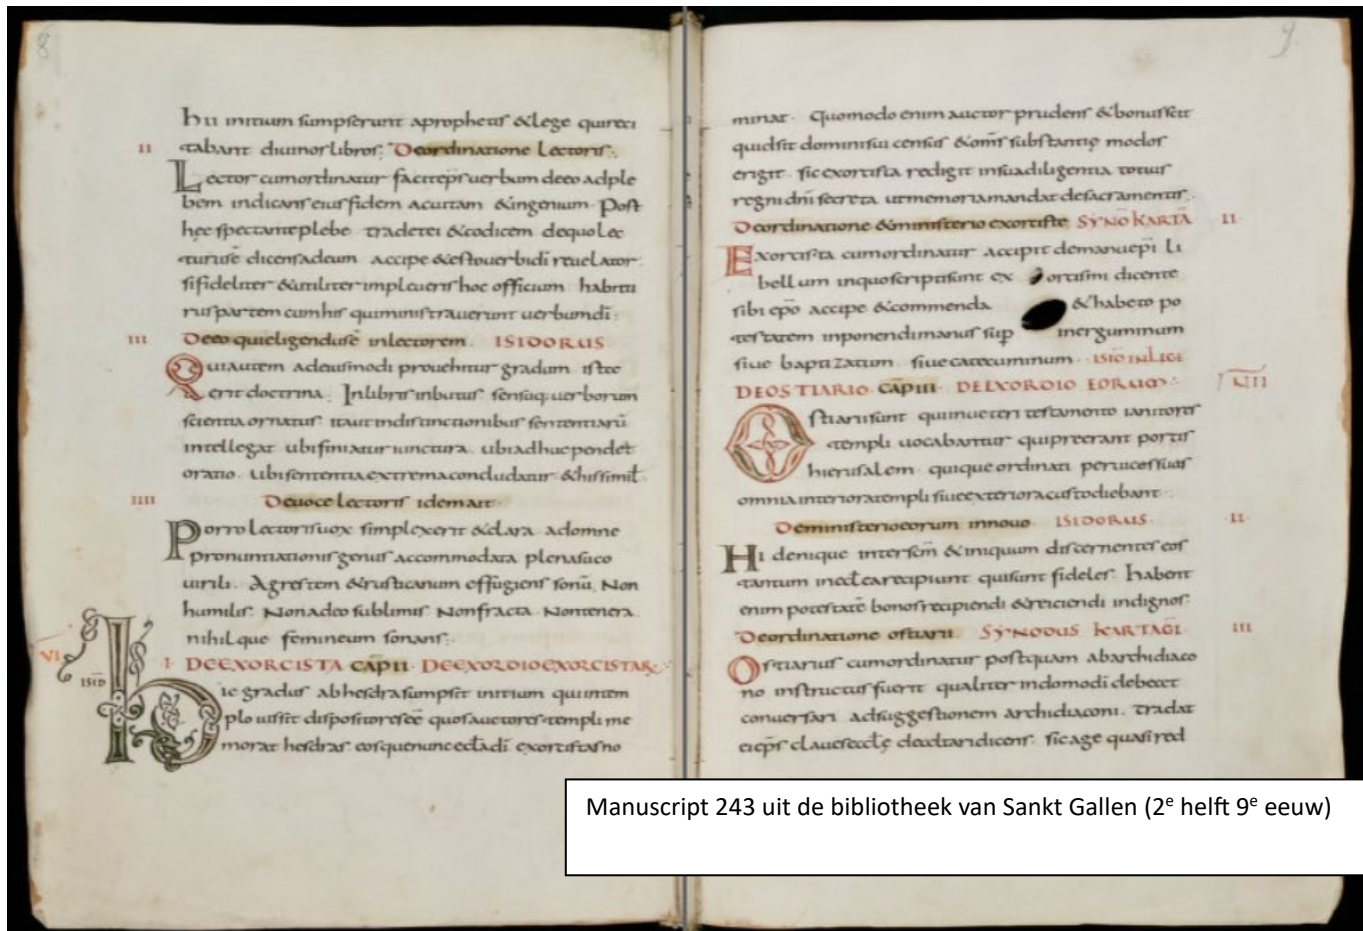 8
hii initium sumpserunt aprophetis & lege quireci
II tabant diuinos libros; De ordinatione Lectoris;
Lector cumordinatur facit eps uerbum deeo adple
bem indicans eius fidem acuitam & ingenium. Post
hęc spectante plebe tradet ei & codicem dequo lec
turus ē dicens adeum accipe & esto uerbi dī reuelator
sifideliter & utiliter impleueris hoc officium habitu
rus partem cumhis quiministrauerunt uerbum dī;
III Deeo quieligendus ē inlectorem ISIDORUS
Qui autem adeiusmodi prouehitur gradum iste
erit doctrina. Inlibris inbutus sensuq; uerborum
scientia ornatus itaut indistinctionibus sententiarū
intellegat ubifiniatur iunctura ubiadhuc pendet
oratio ubisententia extrema concludatur & hissimiƚ
IIII Deuoce Lectoris idem ait
Porro Lectoris uox simplex erit & clara adomne
pronuntiationis genus accommodata plena suco
uirili. Agrestem & rusticanum effugiens sonū. Non
humilis Non adeo sublimis Non fracta Non tenera
nihilque femineum sonans;
VI I DE EXORCISTA CAP̄ II DE EXORDIO EXORCISTAR;
ISID Hic gradus abhesdra sumpsit initium quintem
plo iussit dispositores eē quos auctores templi me
morat hesdras eosque nunc eccƚa dī exorcistas no
9
minat. Quomodo enim auctor prudens & bonus scit
quidsit dominisui census & om̄s substantię modos
erigit sic exorcista redigit insua diligentia totius
regni dn̄i secreta ut memoria mandat desacramentis.
De ordinatione & ministerio exorcistę SYNO KARTA II
Exorcista cumordinatur accipit demanu ep̄i li
bellum inquo scripti sunt ex orcismi dicente
sibi ep̄o accipe & commenda & habeto po
testatem inponendi manus sup inerguminum
siue baptizatum siue catecuminum ISID IN LICI
DE OSTIARIO CAP̄ III DE EXORDIO EORUM; VII
Ostiarii sunt qui in ueteri testamento ianitores
templi uocabantur qui preerant portis
hierusalem quique ordinati per uices suos
omnia interiora templi siue exteriora custodiebant.
De ministerio eorum in nouo ISIDORUS II
Hi denique inter scm̄ & iniquum discernentes eos
tantum in eccƚea recipiunt qui sunt fideles habent
enim potestatē bonos recipiendi & reiciendi indignos
De ordinatione ostiarii SYNODUS KARTAGI III
Ostiarius cumordinatur postquam abarchidiaco
no instructus fuerit qualiter indomo dī debeat
conuersari adsuggestionem archidiaconi. tradat
ei ep̄s claues eccƚę de altari dicens. sic age quasi red
Manuscript 243 uit de bibliotheek van Sankt Gallen (2e helft 9e eeuw)